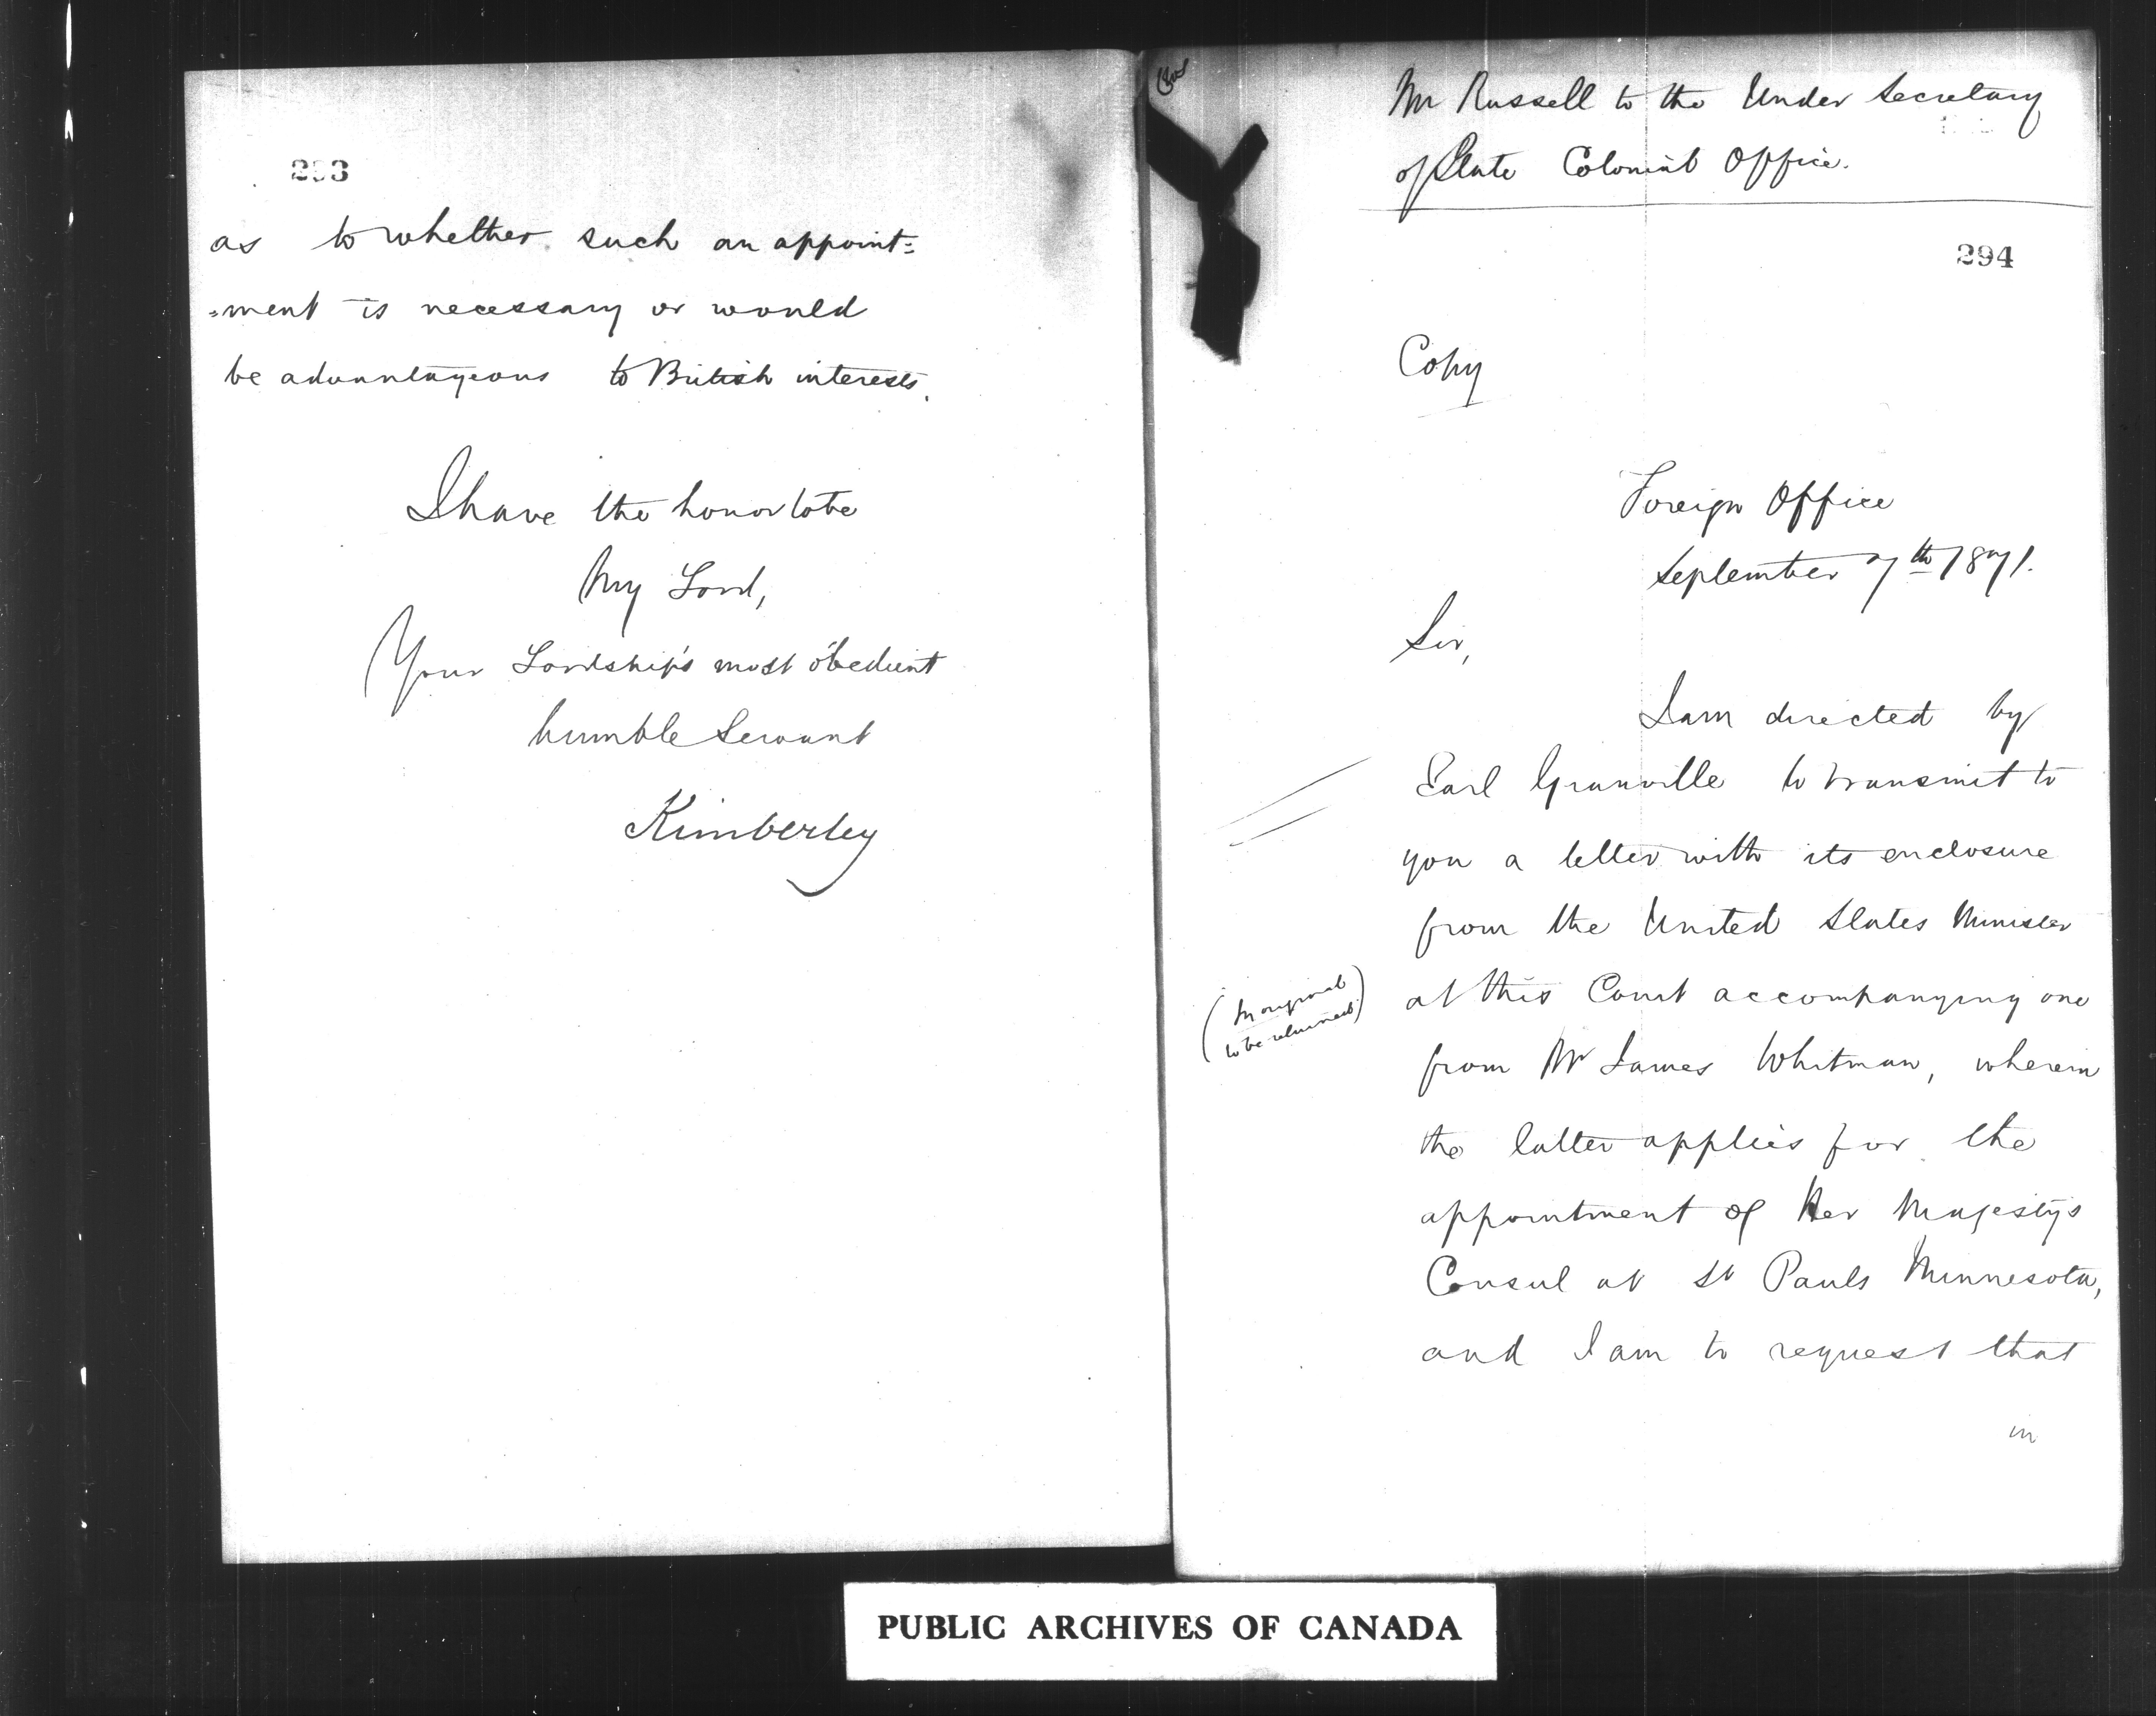 293
as to whether such an appoint=
=ment is necessary or would
be advantageous to British interests.
I have the honor to be
My Lord,
Your Lordship's most obedient
humble Servant
Kimberley
Mr Russell to the Under Secretary
of State Colonial Office.
294
Copy
Foreign Office
September 7th 1871.
Sir,
I am directed by
Earl Granville to transmit to
you a letter with its enclosure
from the United States Minister
(In original
to be returned)
at this Court accompanying one
from Mr James Whitman, wherein
the latter applies for the
appointment of Her Majesty's
Consul at St Pauls Minnesota,
and I am to request that
in
PUBLIC ARCHIVES OF CANADA